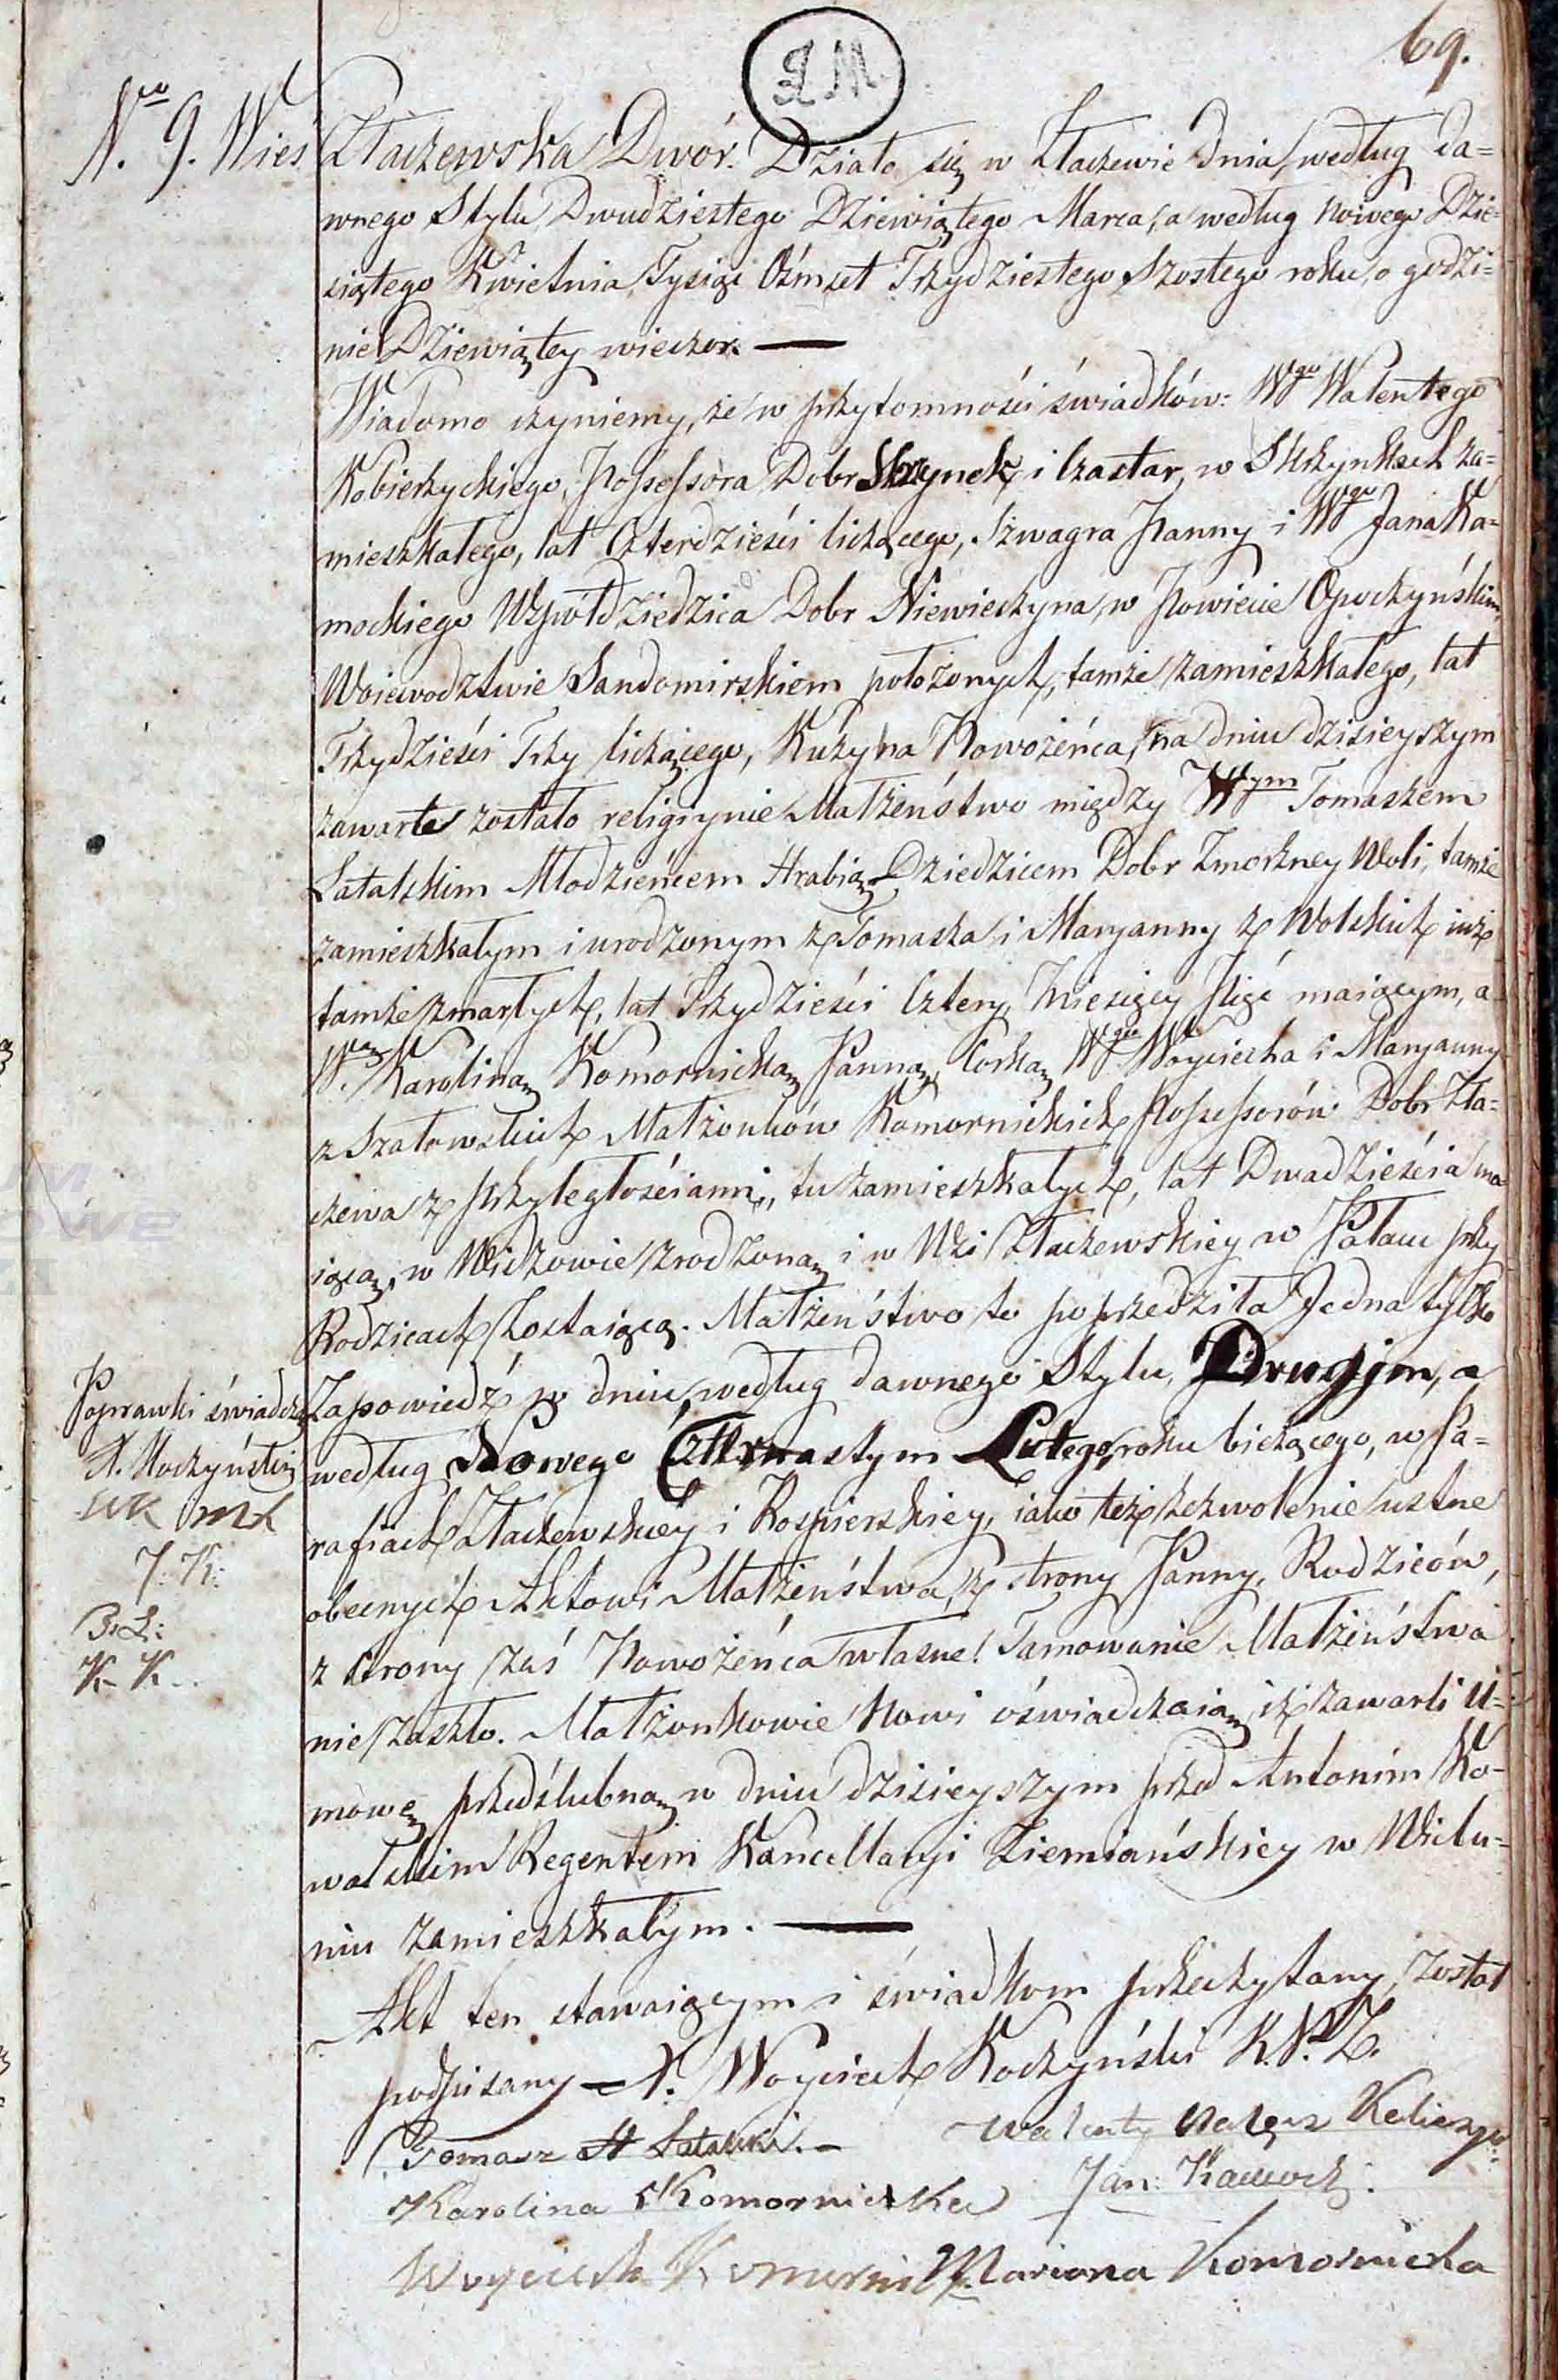 69.
J M
Nro 9. Wieś Złaczewska Dwór. Działo się w Złaczewie dnia, według da=
wnego Stylu, Dwudziestego Dziewiątego Marca, a według nowego Dzie=
siątego Kwietnia, Tysiąc Ośmset Trzydziestego Szostego roku, o godzi=
nie Dziewiątey wieczor. —
Wiadomo czyniemy, że w przytomności świadków: Wgo Walentego
Kobierzyckiego, Possessora Dobr Skrzynek i Czastar, w Skrzynkach za=
mieszkałego, lat Czterdzieści liczącego, Szwagra Panny i Wgo Jana Ka=
mockiego Współdziedzica Dobr Niewierzyna, w Powiecie Opoczyńskim,
Woiewodztwie Sandomirskiem położonych, tamże zamieszkałego, lat
Trzydzieści Trzy liczącego, Kuzyna Nowożeńca, na dniu dzisieyszym
zawarte zostało religiynie Małżeństwo między Wym Tomaszem
Latalskim Młodzieńcem Hrabią Dziedzicem Dobr Zmożney Woli, tamże
zamieszkałym i urodzonym z Tomasza i Maryanny z Wolskich iuż
tamże zmarłych, lat Trzydzieści Cztery, Miesięcy Pięć maiącym, a
W. Karoliną Komornicką Panną, Corką Wgo Woyciecha i Maryanny
z Szatowskich Małżonków Komornickich Possessorów Dobr Zła=
czewa z przyległościami, tu zamieszkałych, lat Dwadzieścia ma
iącą, w Widzowie zrodzoną i w Wsi Złaczewskiey w Pałacu przy
Rodzicach zostaiącą. Małżeństwo to poprzedziła Jedna tylko
Zapowiedź w dniu, według dawnego Stylu, Drugim, a
według Nowego Czternastym Lutego, roku bieżącego, w Pa=
rafiach Złaczewskiey i Rospierskiey, iako też zezwolenie ustne
obecnych Aktowi Małżeństwa, z strony Panny, Rodziców,
z strony zaś Nowożeńca własne. Tamowanie Małżeństwa
nie zaszło. Małżonkowie Nowi oświadczaią, iż zawarli U=
mowę przedślubną w dniu dzisieyszym przed Antonim Ko=
walskim Regentem Kancellaryi Ziemiańskiey w Wielu=
niu zamieszkałym. —
Akt ten stawaiącym i świadkom przeczytany, został
podpisany — X. Woyciech Koczyński
Tomasz H Latalski. — Walenty
Karolina Komornicka Jan Kamocki.
Woyciech Komornicki Mariana Komornicka
Poprawki świadczą
X. Koczyński
WK
J. K:
K. K.